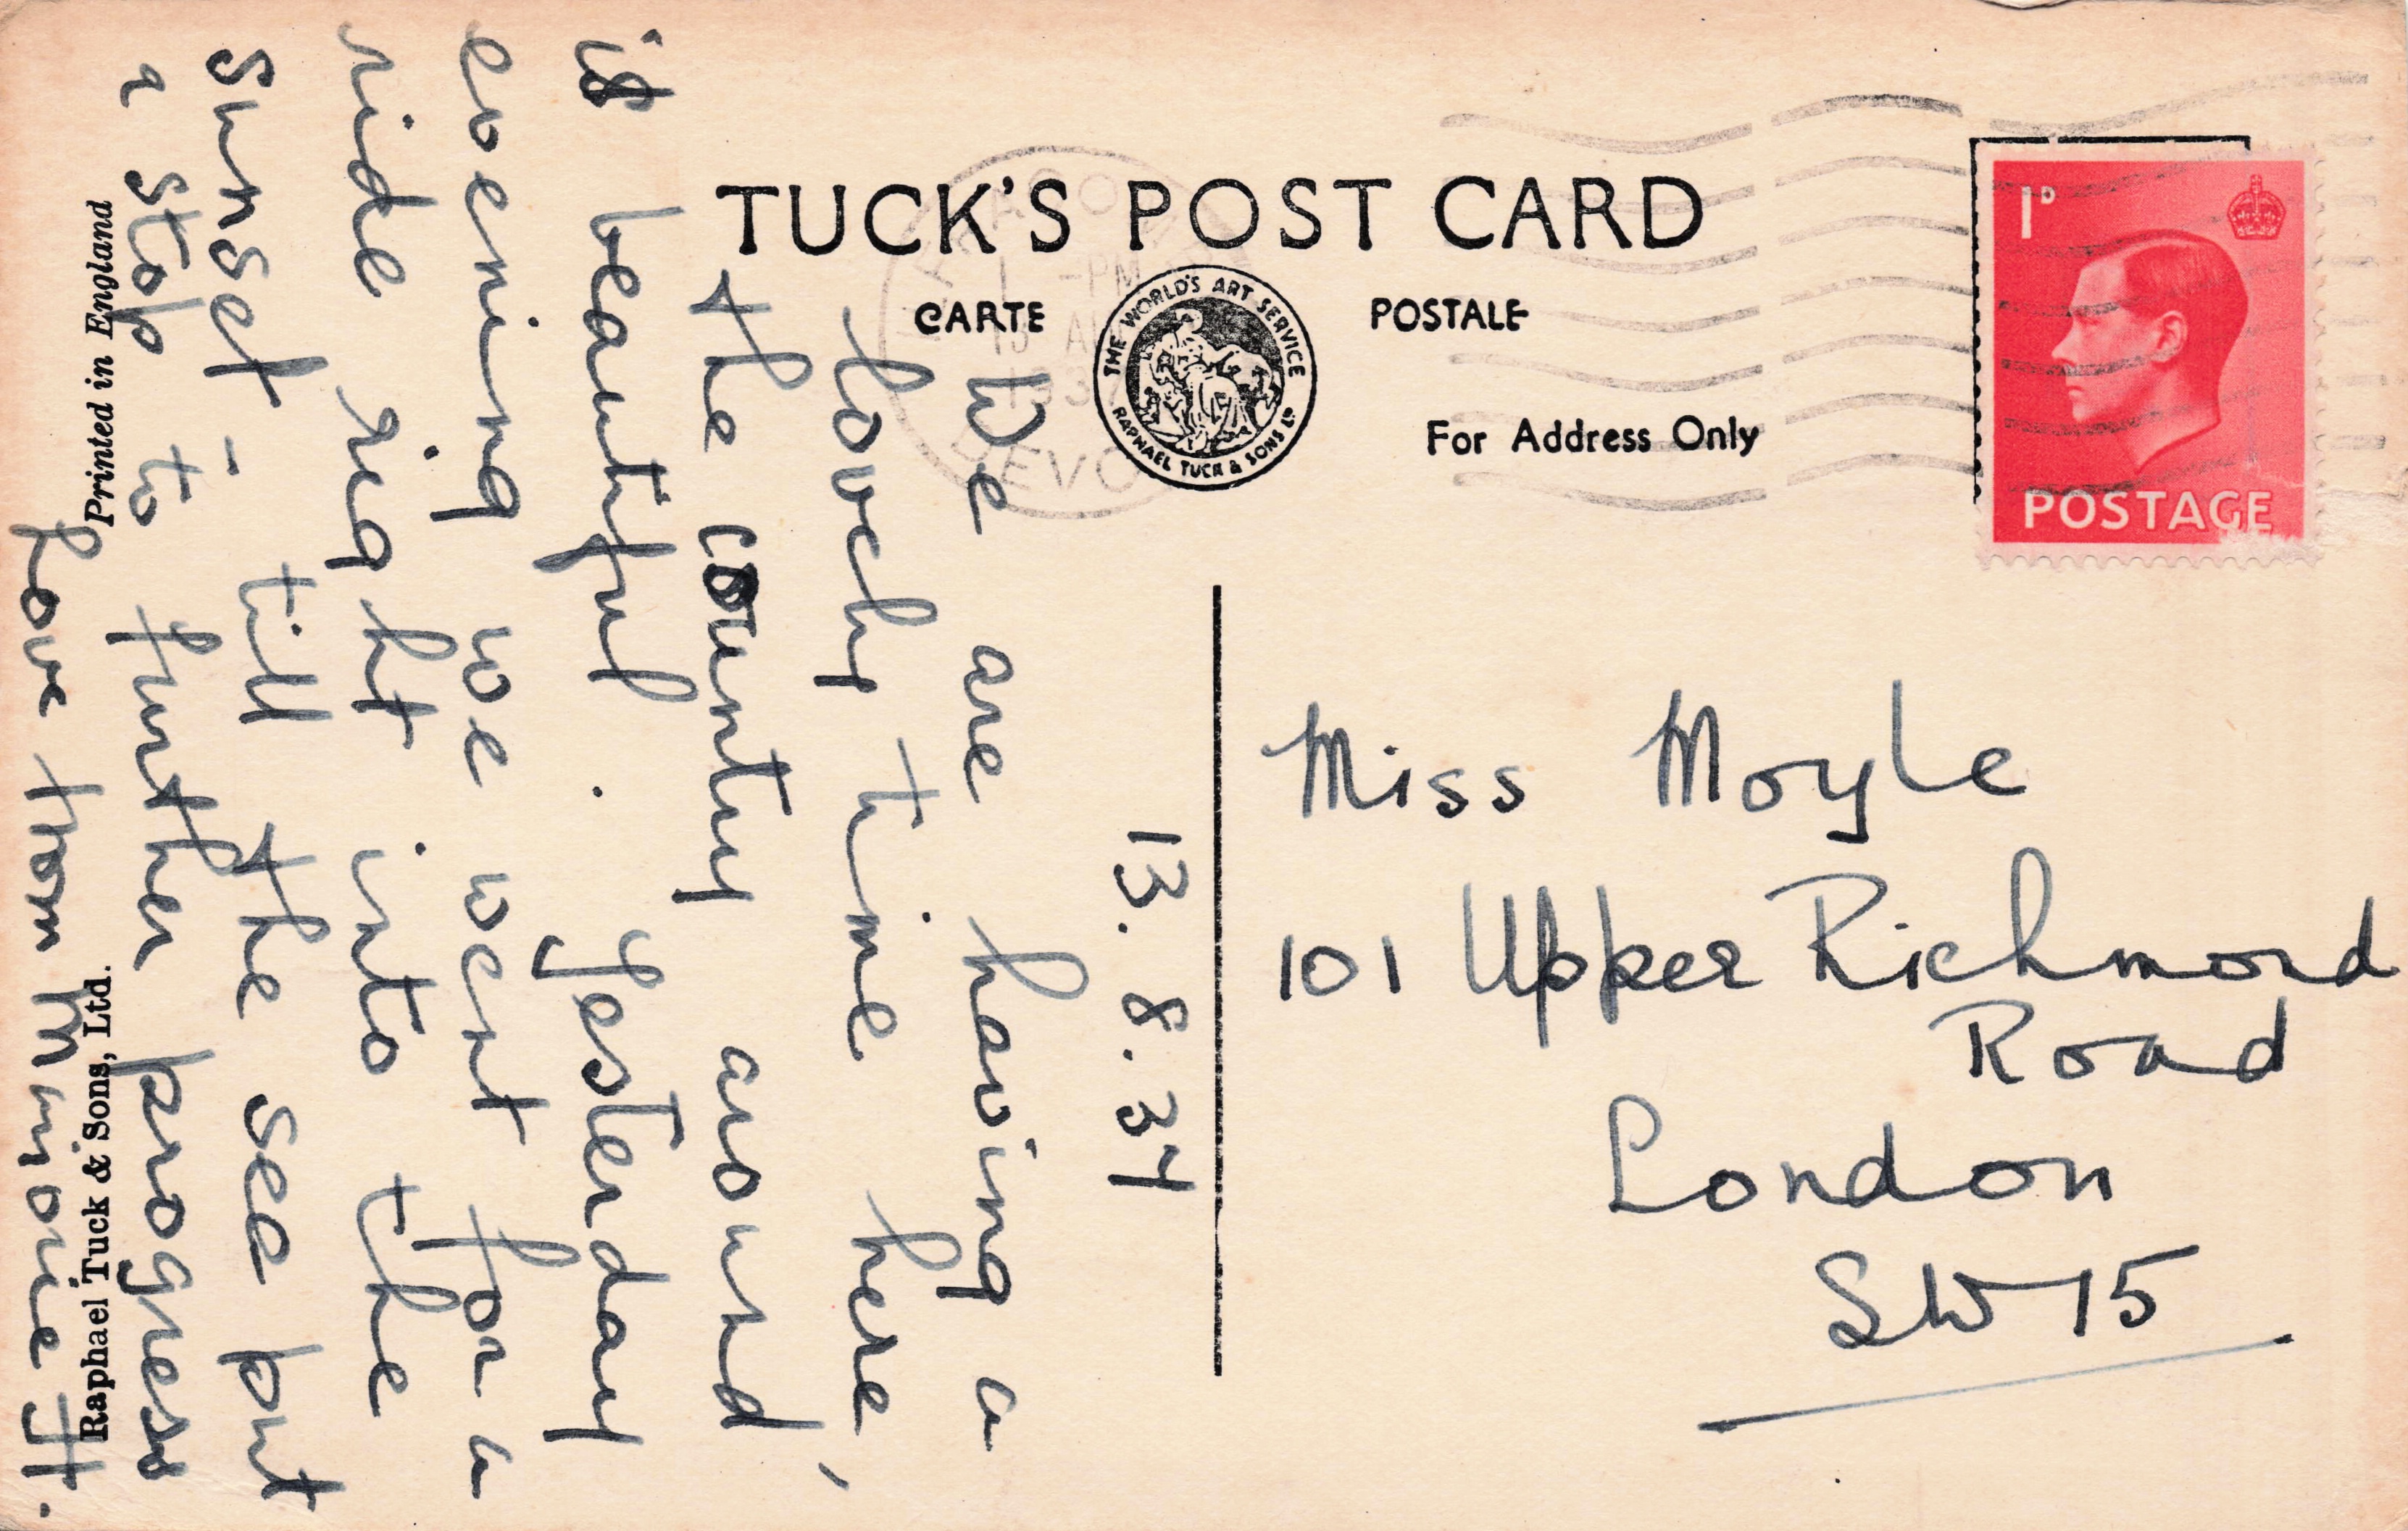 TUCK'S POST CARD
CARTE POSTALE
THE WORLD'S ART SERVICE
RAPHAEL TUCK & SONS LD
For Address Only
1D
POSTAGE
1 -PM
DEVO
13. 8. 37
We are having a
lovely time here,
the country around
is beautiful. Yesterday
evening we went for a
ride right into the
sunset - till the sea put
a stop to further progress
Love from Minorie H.
Miss Moyle
101 Upper Richmond
Road
London
SW15
Printed in England
Raphael Tuck & Sons, Ltd.